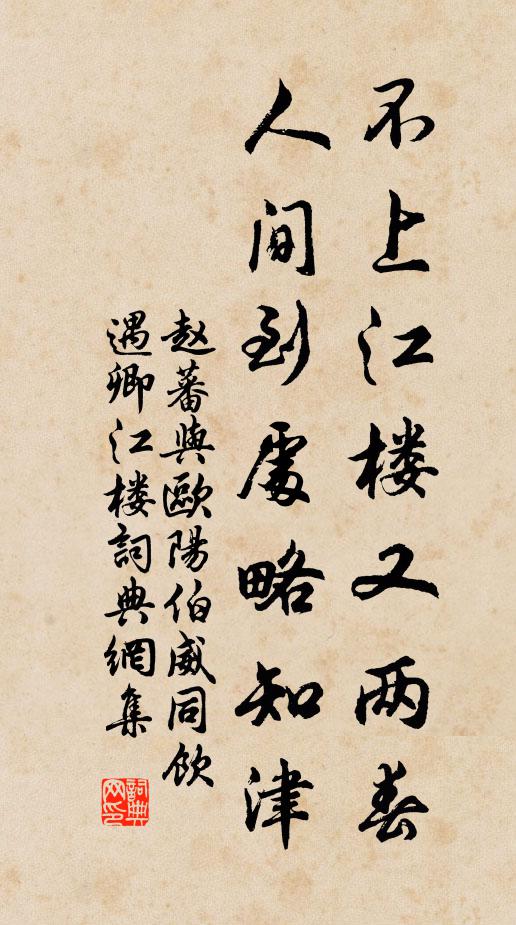 不上江楼又两春
人间到處略知津
赵蕃與歐陽伯威同飲
遇卿江楼詞典網集
詞典网印